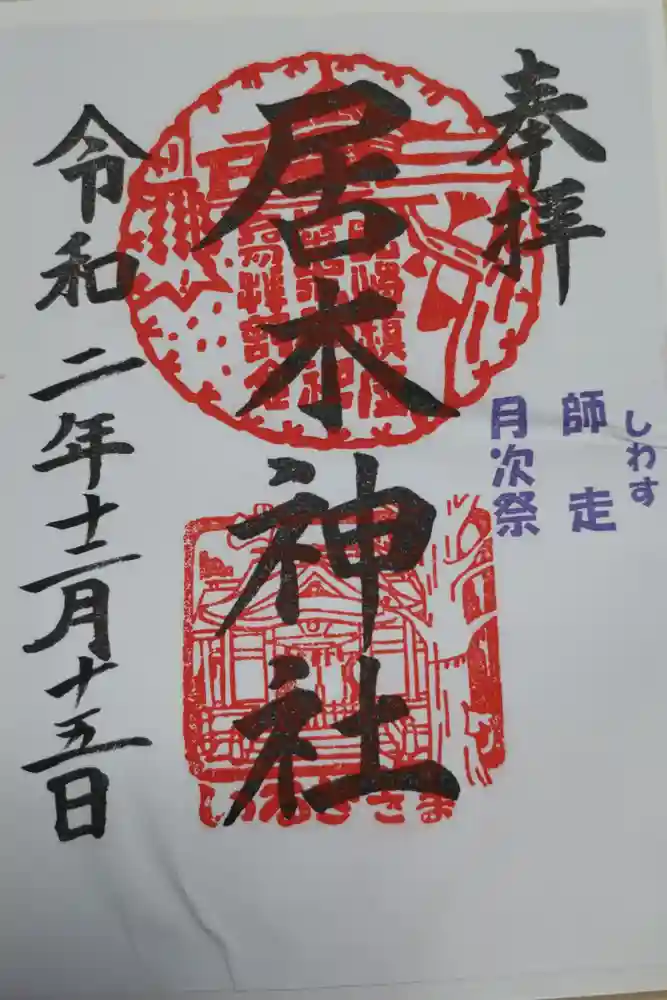 奉拝
しわす
師走
月次祭
居木神社
いるぎさま
令和二年十二月十五日